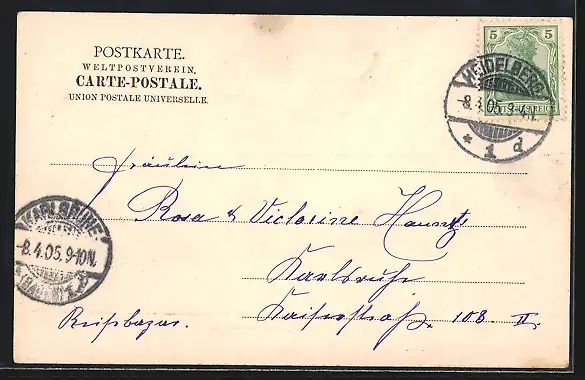 POSTKARTE.
WELTPOSTVEREIN.
CARTE-POSTALE.
UNION POSTALE UNIVERSELLE.
5
DEUTSCHES REICH
HEIDELBERG
8.4.05. 9-10N.
* 1 d
Fräulein
Rosa & Victorine
Karlsruhe
Kaiserstraße. 108. II.
KARLSRUHE
8.4.05. 9-10N.
(BADEN)